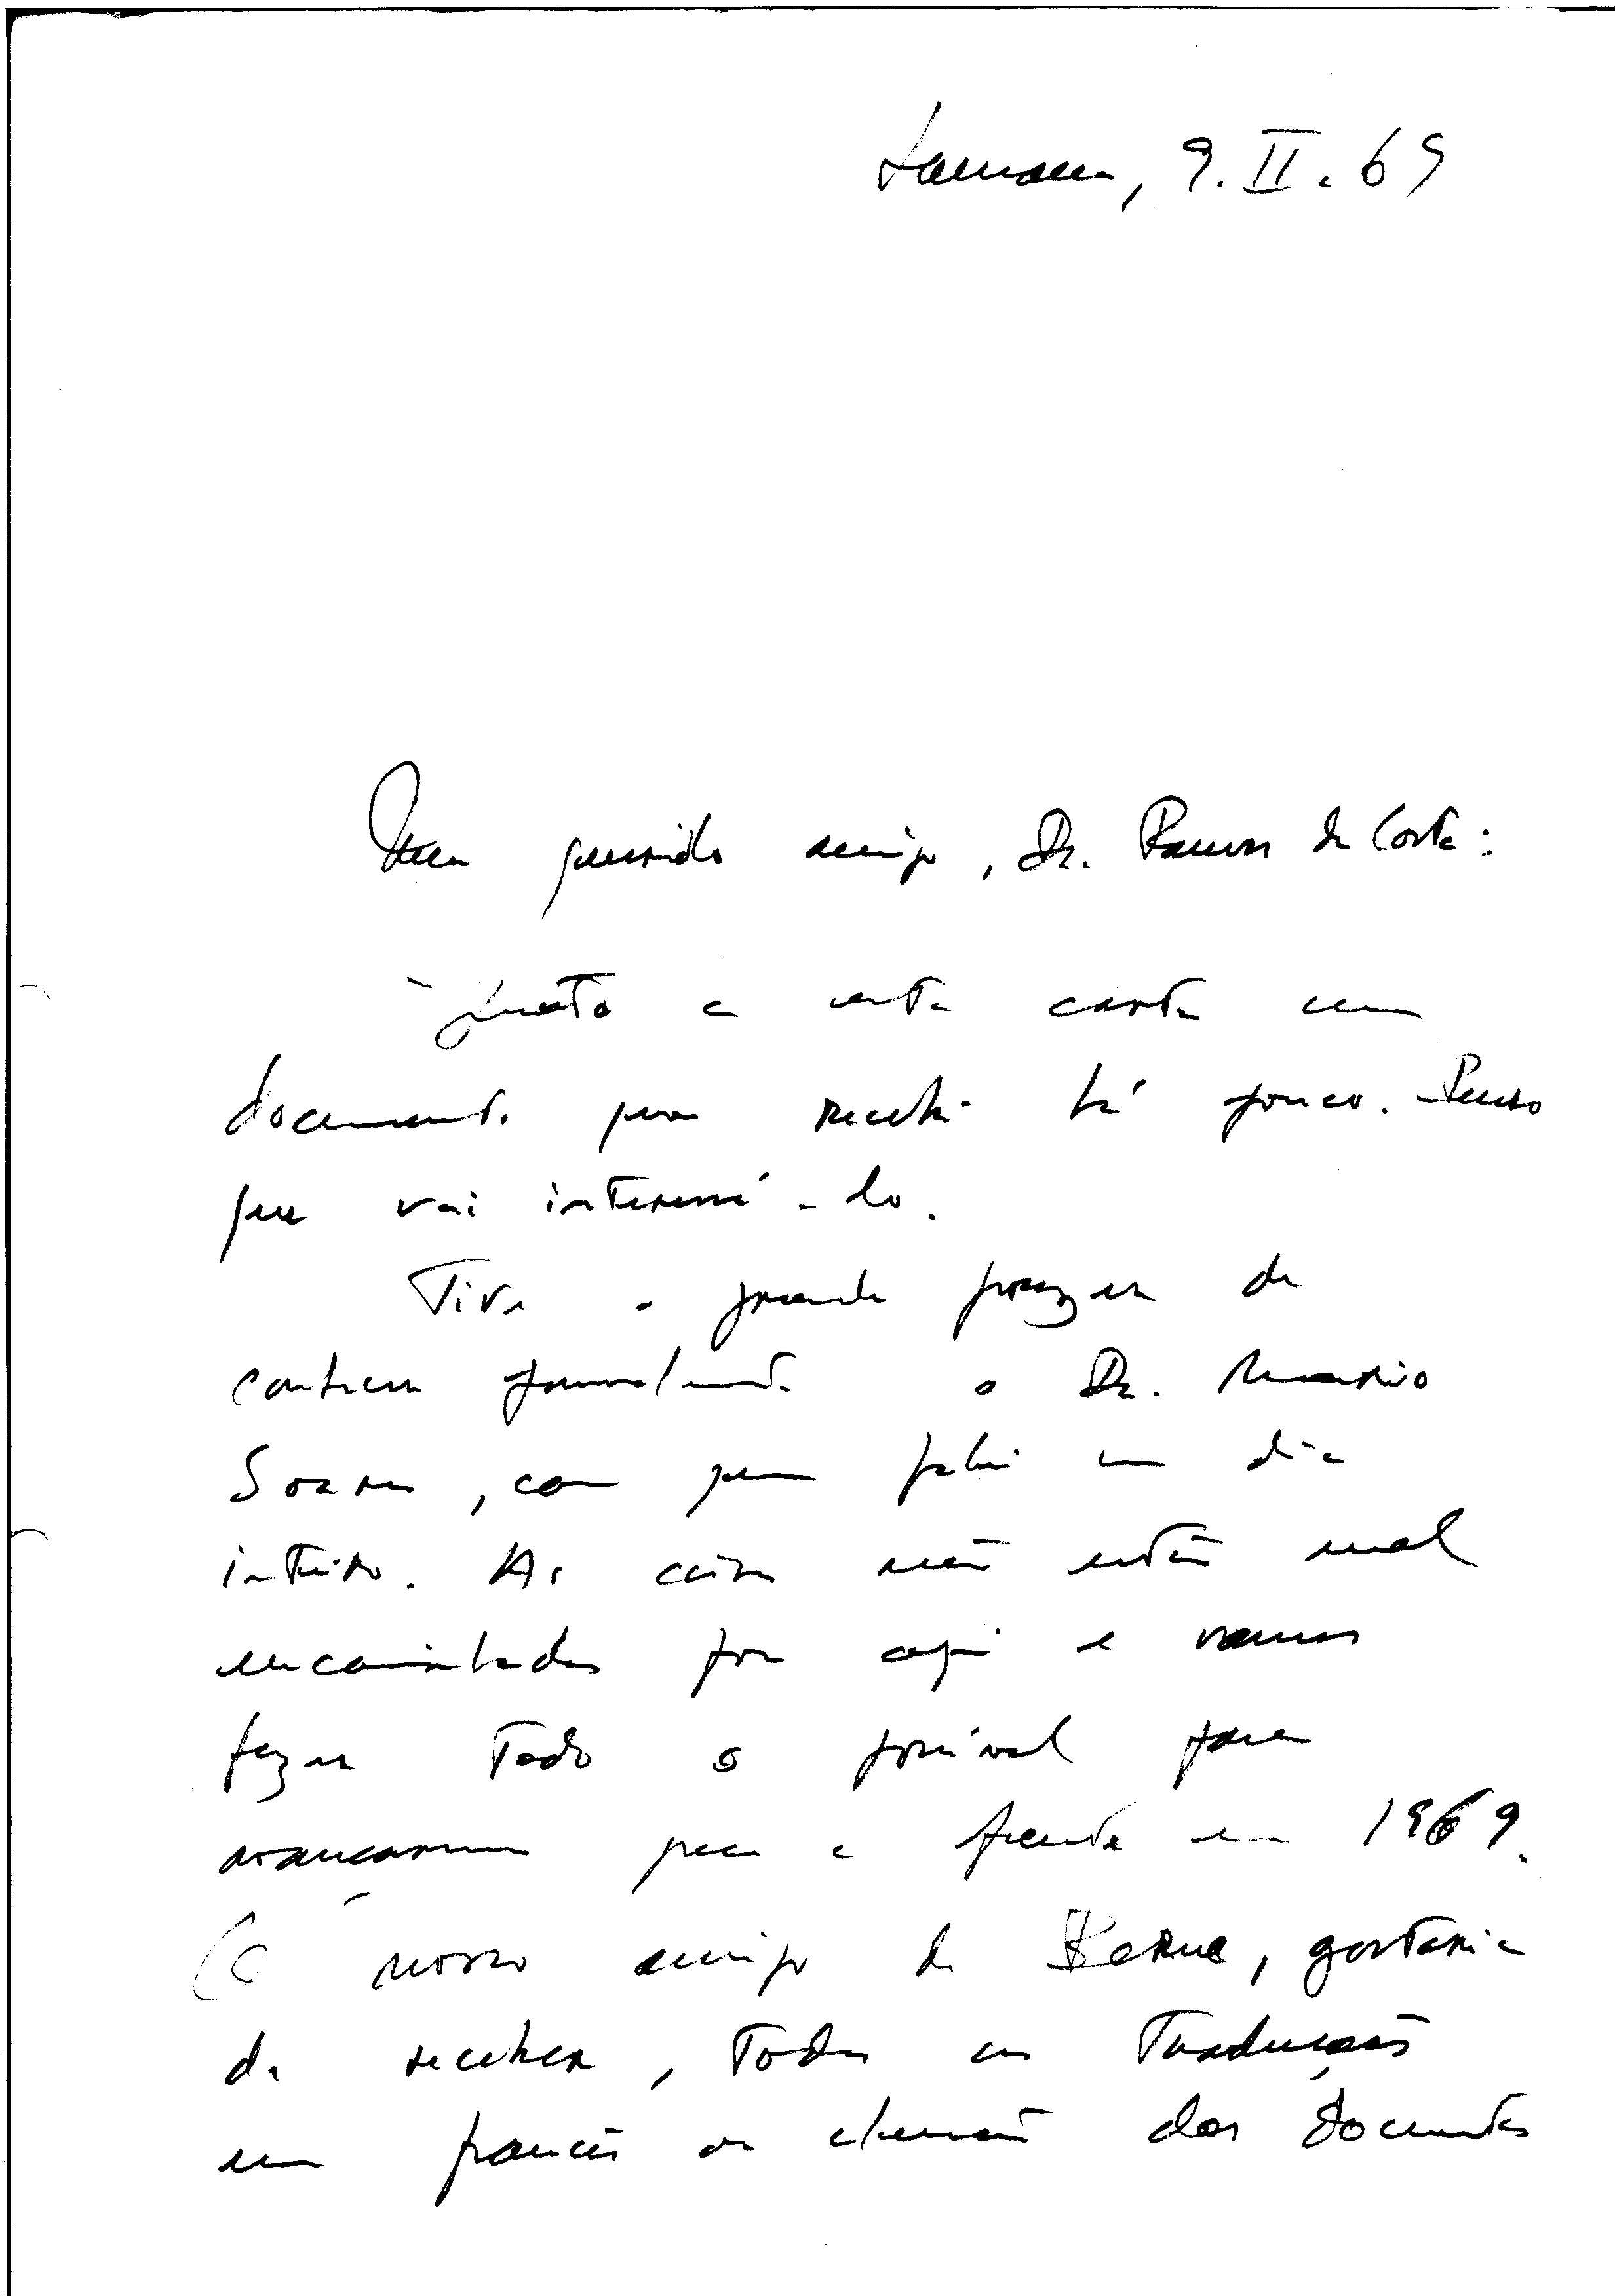 Lausanne, 9.II.69
Meu querido amigo, Dr. Ramos da Costa:
Junto a esta carta um
documento que recebi há pouco. Penso
que vai interessá-lo.
Tive o grande prazer de
conhecer pessoalmente o Dr. Mario
Soares, com quem falei um dia
inteiro. As coisas não estão mal
encaminhadas por aqui e vamos
fazer todo o possível para
avançarmos para a frente em 1969.
O nosso amigo de Berne, gostaria
de receber, todas as traduções
em francês ou alemão dos documentos